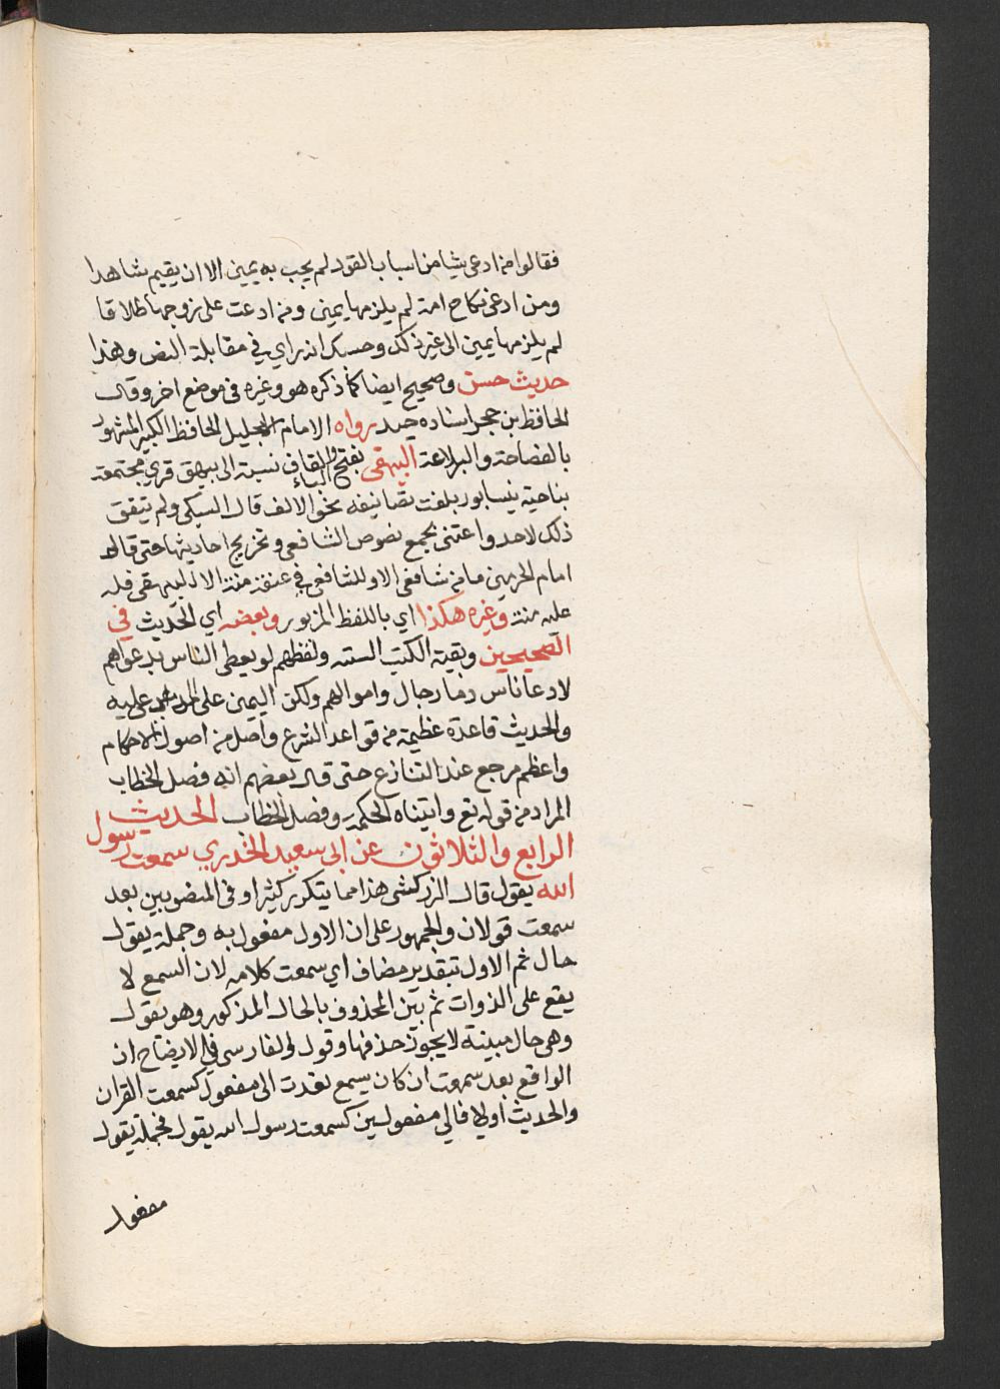 فقالوا من ادعى شيا من اسباب القود لم يجب به يمين الا ان يقيم شاهدا
ومن ادعى نكاح امة لم يلزمها يمين ومن ادعت على زوجها طلاقا
لم يلزمها يمين الى غير ذلك وحسبك انه راي في مقابلة النص وهذا
حديث حسن وصحيح ايضا كما ذكره هو وغيره في موضع اخر وقال
الحافظ بن حجر اسناده جيد رواه الامام الجليل الحافظ الكبير المشهور
بالفصاحة والبراعة البيهقي بفتح الباء والقاف نسبة الى بيهق قرى مجتمعة
بناحية نيسابور بلغت تصانيفه نحو الالف قال السبكي ولم يتفق
ذلك لاحد واعتنى بجمع نصوص الشافعي وتخريج احاديثها حتى قال
امام الحرمين ما من شافعي الا وللشافعي في عنقه منة الا البيهقي فله
عليه منة وغيره هكذا اي باللفظ المزبور وبعضه اي الحديث في
الصحيحين وبقية الكتب الستة ولفظهم لو يعطى الناس بدعواهم
لادعا ناس دما رجال واموالهم ولكن اليمين على المدعى عليه
والحديث قاعدة عظيمة من قواعد الشرع واصل من اصول الاحكام
واعظم مرجع عند التنازع حتى قال بعضهم انه فصل الخطاب
المراد من قوله تع واتيناه الحكمة وفصل الخطاب الحديث
الرابع والثلاثون عن ابي سعيد الخدري سمعت رسول
الله يقول قال الزركشي هذا مما يتكرر كثيرا وفي المنصوبين بعد
سمعت قولان والجمهور على ان الاول مفعول به وجملة يقول
حال ثم الاول بتقدير مضاف اي سمعت كلامه لان السمع لا
يقع على الذوات ثم بين المحذوف بالحال المذكور وهو يقول
وهي حال مبينة لا يجوز حذفها وقول الفارسي في الايضاح ان
الواقع بعد سمعت ان كان يسمع تعدت الى مفعول كسمعت القران
والحديث اولا فالي مفعولين كسمعت رسول الله يقول فجملة يقول
مفعول